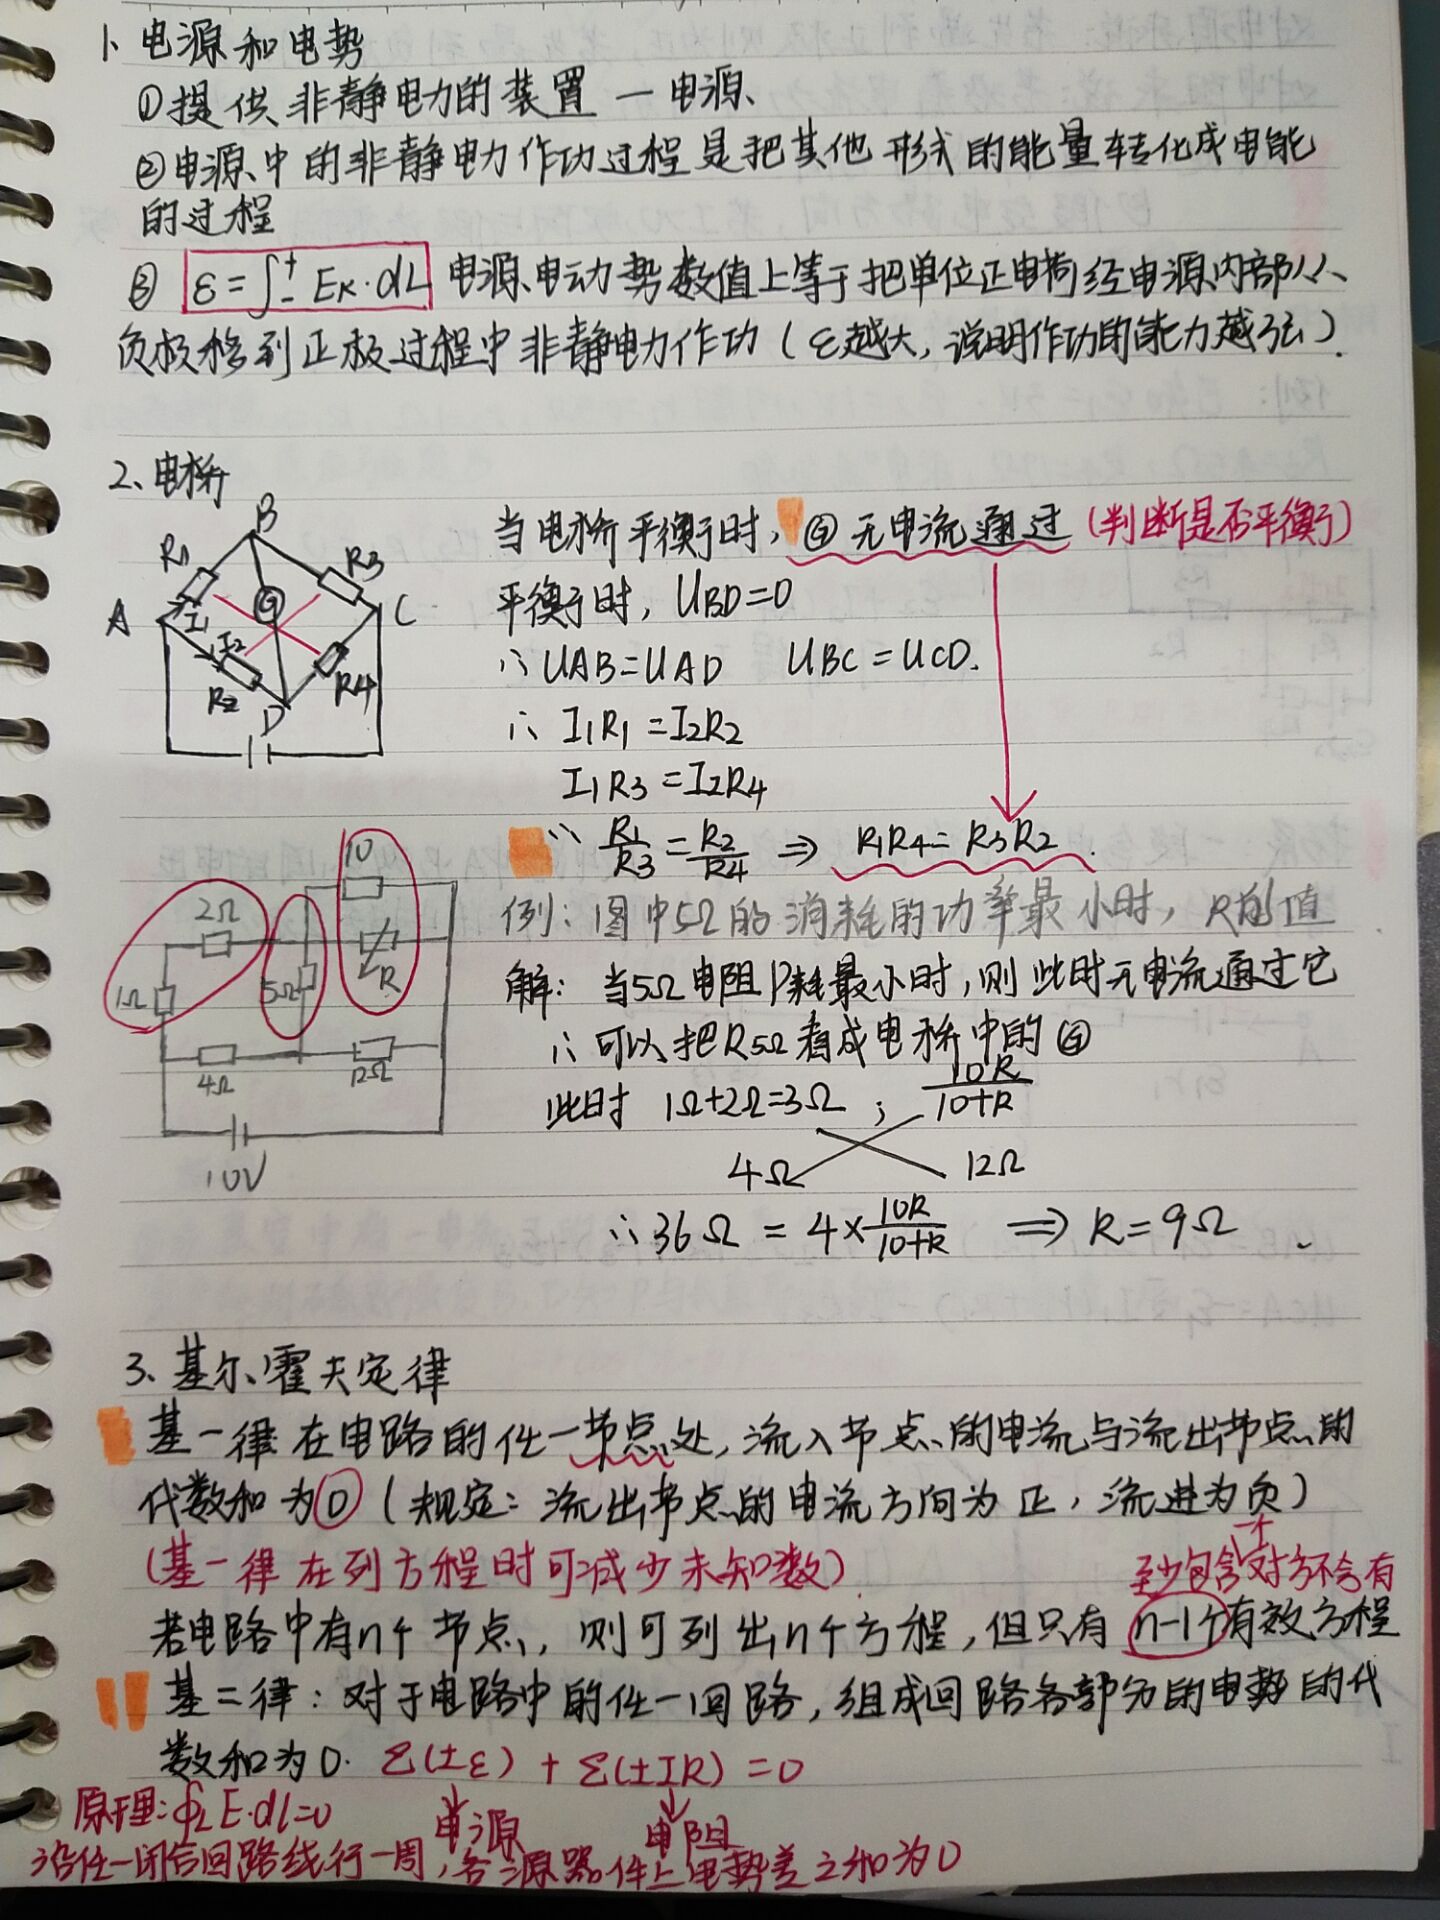 1、电源和电势
①提供非静电力的装置 — 电源、
②电源中的非静电力作功过程是把其他形式的能量转化成电能
的过程
③ ε=∫₋⁺ Eκ·dL 电源电动势数值上等于把单位正电荷经电源内部从
负极移到正极过程中非静电力作功(ε越大,说明作功的能力越强).
2、电桥
B
R1
R3
G
A
C
I1
I2
R2
R4
D
当电桥平衡时, Ⓖ 无电流通过 (判断是否平衡)
平衡时, UBD=0
∴ UAB=UAD UBC=UCD.
∴ I1R1=I2R2
I1R3=I2R4
∴ R1/R3=R2/R4 ⇒ R1R4=R3R2.
10
2Ω
1Ω
5Ω
R
4Ω
12Ω
10V
例: 图中5Ω的消耗的功率最小时, R的值
解: 当5Ω电阻P耗最小时,则此时无电流通过它
∴ 可以把R5Ω看成电桥中的Ⓖ
此时 1Ω+2Ω=3Ω ; 10R/10+R
4Ω 12Ω
∴36Ω = 4×10R/10+R ⇒ R=9Ω
3、基尔霍夫定律
基一律 在电路的任一节点处,流入节点的电流与流出节点的
代数和为0 (规定: 流出节点的电流方向为正,流进为负)
(基一律在列方程时可减少未知数)
至少包含一个对方不含有
若电路中有n个节点,则可列出n个方程,但只有n-1个有效方程
基二律: 对于电路中的任一回路,组成回路各部分的电势的代
数和为0. Σ(±ε) + Σ(±IR)=0
原理:∮L E·dl=0 电源 电阻
沿任一闭合回路绕行一周,各源器件上电势差之和为0